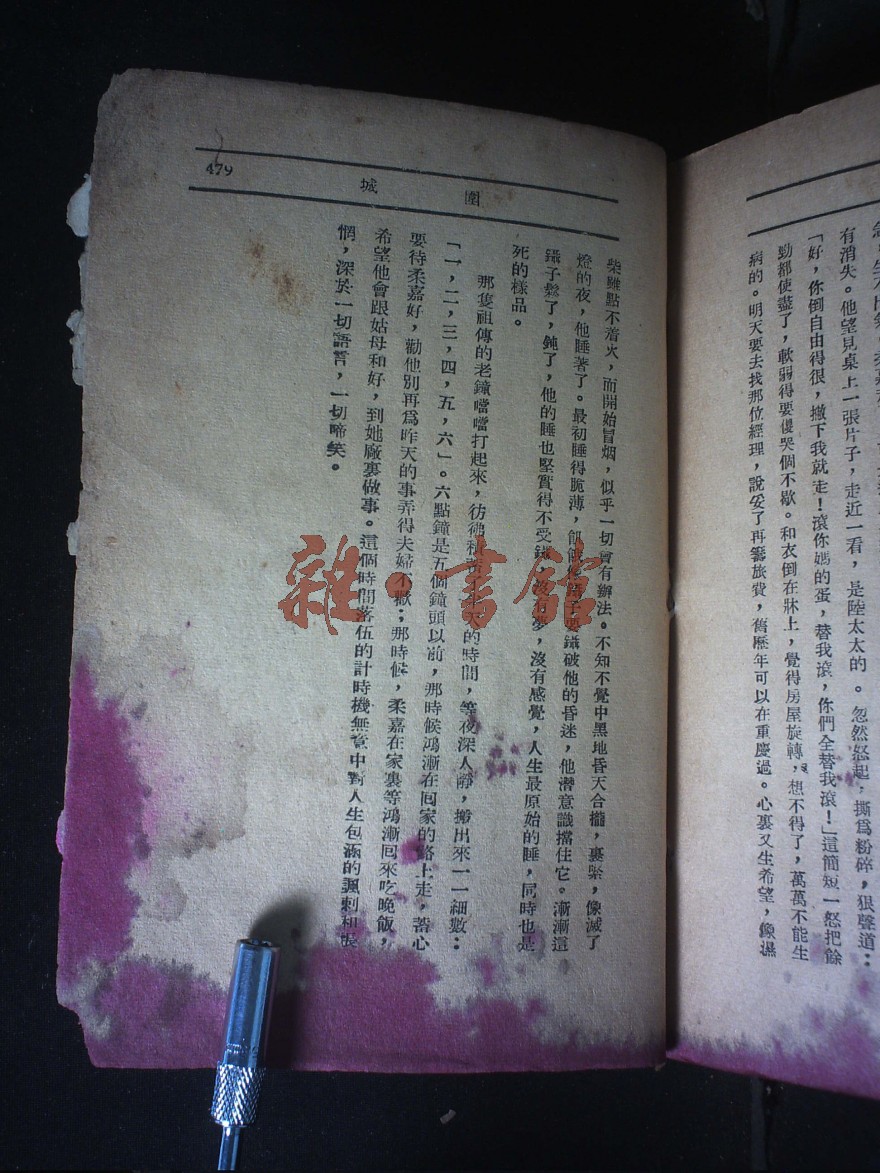 有消失。他望見桌上一張片子，走近一看，是陸太太的。忽然怒起，撕爲粉碎，狠聲道：
「好，你倒自由得很，撇下我就走！滾你媽的蛋，替我滾，你們全替我滾！」這簡短一怒把餘
勁都使盡了，軟弱得要傻哭個不歇。和衣倒在牀上，覺得房屋旋轉，想不得了，萬萬不能生
病的。明天要去找那位經理，說妥了再籌旅費，舊歷年可以在重慶過。心裏又生希望，像濕
圍城
479
柴雖點不着火，而開始冒烟，似乎一切會有辦法。不知不覺中黑地昏天合攏，裹緊，像滅了
燈的夜，他睡著了。最初睡得脆薄，飢餓鑷子要鑷破他的昏迷，他潛意識擋住它。漸漸這
鑷子鬆了，鈍了，他的睡也堅實得不受鑷，沒有夢，沒有感覺，人生最原始的睡，同時也是
死的樣品。
那隻祖傳的老鐘噹噹打起來，彷彿積天的時間，等夜深人靜，搬出來一一細數：
「一，二，三，四，五，六」。六點鐘是五個鐘頭以前，那時候鴻漸在回家的路上走，蓄心
要待柔嘉好，勸他別再爲昨天的事弄得夫婦不歡；那時候，柔嘉在家裏等鴻漸回來吃晚飯，
希望他會跟姑母和好，到她廠裏做事。這個時間落伍的計時機無意中對人生包涵的諷刺和悵
惘，深於一切語言，一切啼笑。
雜·書館